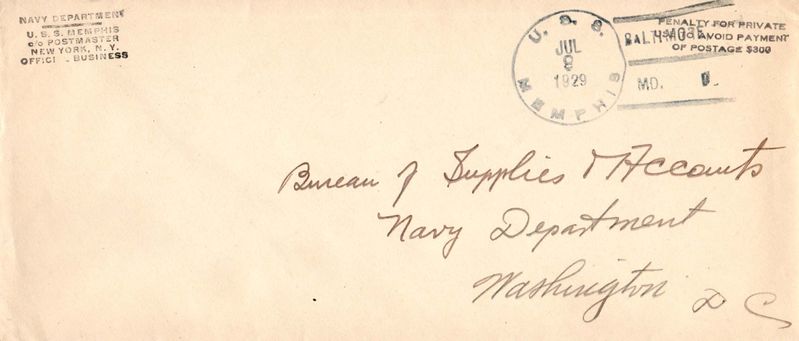 NAVY DEPARTMENT
U. S. S. MEMPHIS
c/o POSTMASTER
NEW YORK, N. Y.
OFFICI - BUSINESS
U. S. S.
JUL
9
1929
MEMPHIS
BALTIMORE
MD.
PENALTY FOR PRIVATE
AVOID PAYMENT
OF POSTAGE $300
Bureau of Supplies & Accounts
Navy Department
Washington D C